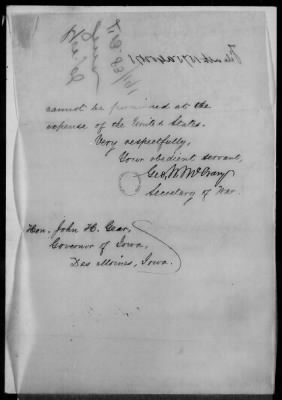 cannot be promised at the
expense of the United States.
Very respectfully,
Your obedient servant,
Geo. W. McCrary
Secretary of War.
Hon. John H. Gear,
Governor of Iowa,
Des Moines, Iowa.